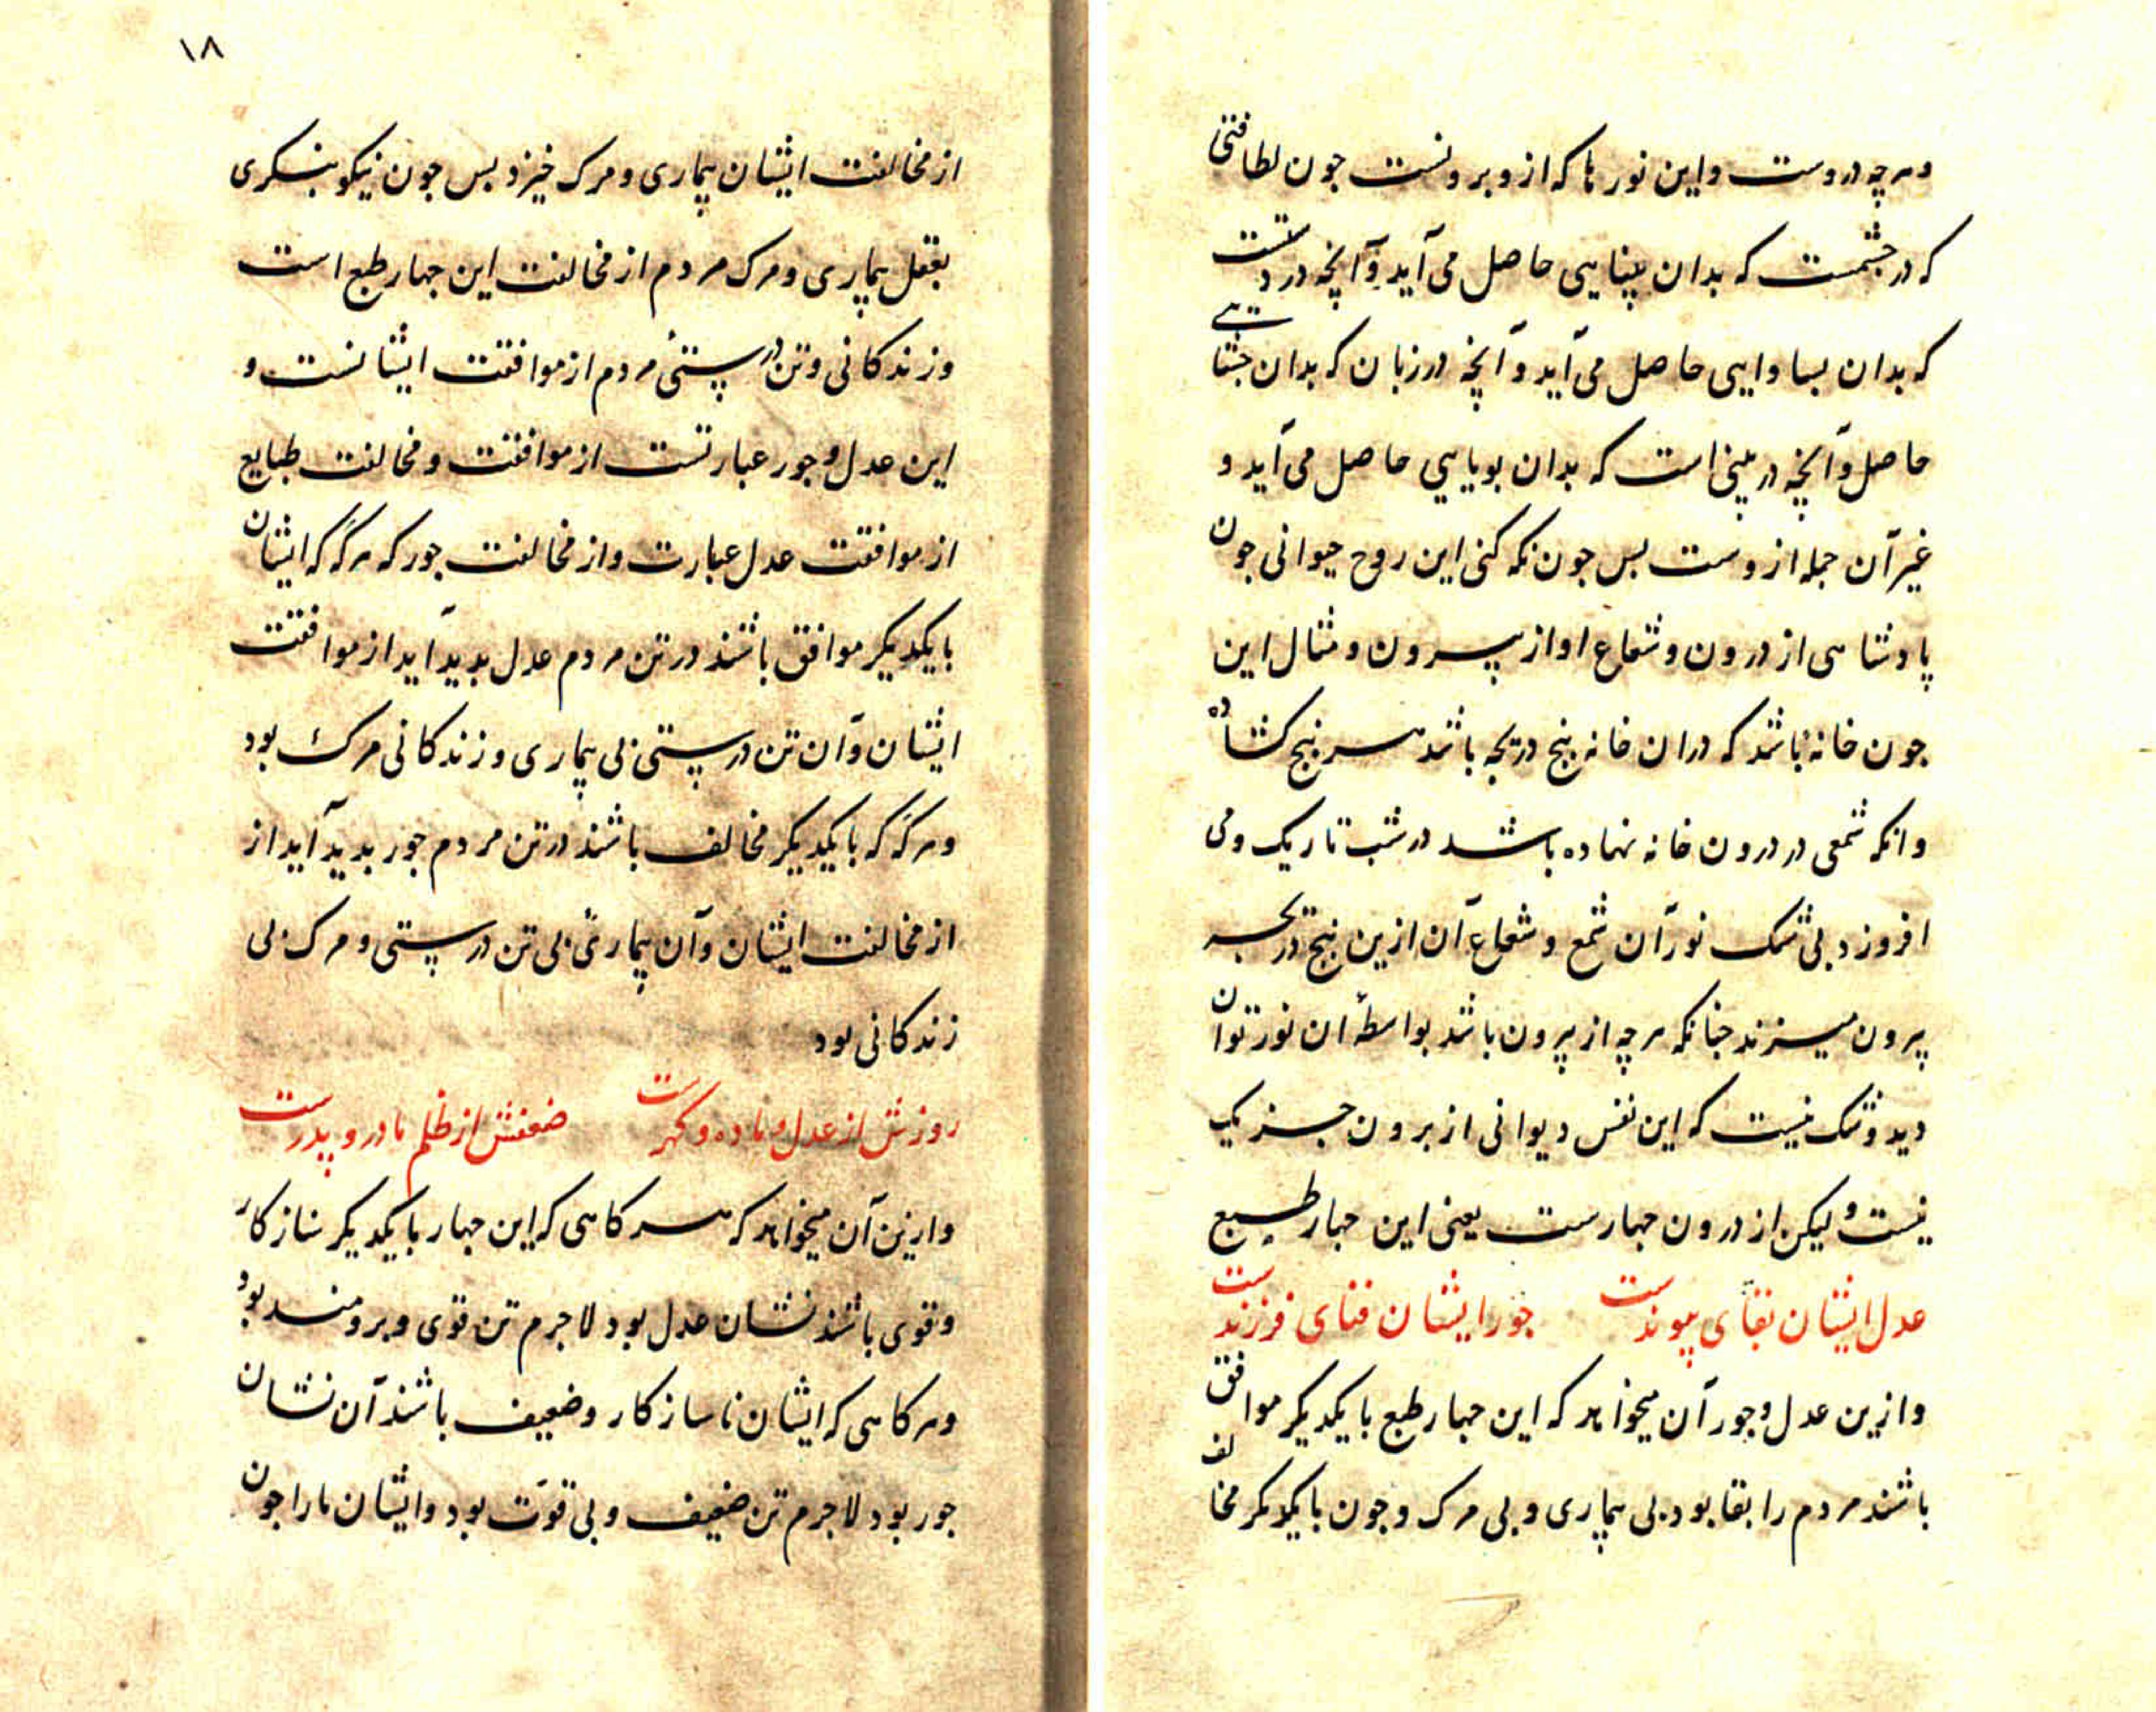 وهرچه دروست واین نورها که ازو برونست جون لطافتی
که در جشمست که بدان بینایی حاصل می آید وآنچه در دستست
که بدان بساوایی حاصل می آید وآنچه در زبان که بدان
حاصل وآنچه در بینی است که بدان بویایی حاصل می آید و
غیر آن جمله ازوست بس جون نکه کنی این روح حیوانی جون
پادشاهی از درون وشعاع او از بیرون ومثال این
جون خانهٔ باشد که دران خانه بنج دریجه باشد هر بنج کشاده
وانکه شمعی در درون خانه نهاده باشد در شب تاریک ومی
افروزد بی شک نور آن شمع وشعاع آن ازین بنج دریجه
بیرون میزند جنانکه هرچه از بیرون باشد بواسطهٔ ان نور توان
دید وشک نیست که این نفس دیوانی از برون جز یک
نیست ولیکن از درون جهارست یعنی این جهار طبع
عدل ایشان بقای پیوندست جور ایشان فنای فرزندست
وازین عدل وجور آن میخواهد که این جهار طبع بایکدیکر موافق
باشند مردم را بقا بود بی بیماری وبی مرک وجون بایکدیکر مخالف
۱۸
از مخالفت ایشان بیماری ومرک خیزد بس جون نیکو بنکری
بعقل بیماری ومرک مردم از مخالفت این جهار طبع است
وزندکانی وتن درستیٔ مردم از موافقت ایشانست و
این عدل وجور عبارتست از موافقت ومخالفت طبایع
از موافقت عدل عبارت واز مخالفت جور که هرکه که ایشان
بایکدیکر موافق باشند در تن مردم عدل بدید آید از موافقت
ایشان وآن تن درستی بی بیماری وزندکانی مرک بود
وهرکه که بایکدیکر مخالف باشند در تن مردم جور بدید آید از
از مخالفت ایشان وآن بیماریٔ بی تن درستی ومرک بی
زندکانی بود
روزش از عدل وماده وکهرست ضعفش از ظلم مادر وپدرست
وازین آن میخواهد که هرکاهی که این جهار بایکدیکر سازکار
وقوی باشند نشان عدل بود لاجرم تن قوی وبرومند بود
وهرکاهی که ایشان ناسازکار وضعیف باشند آن نشان
جور بود لاجرم تن ضعیف وبی قوّت بود وایشان مارا جون